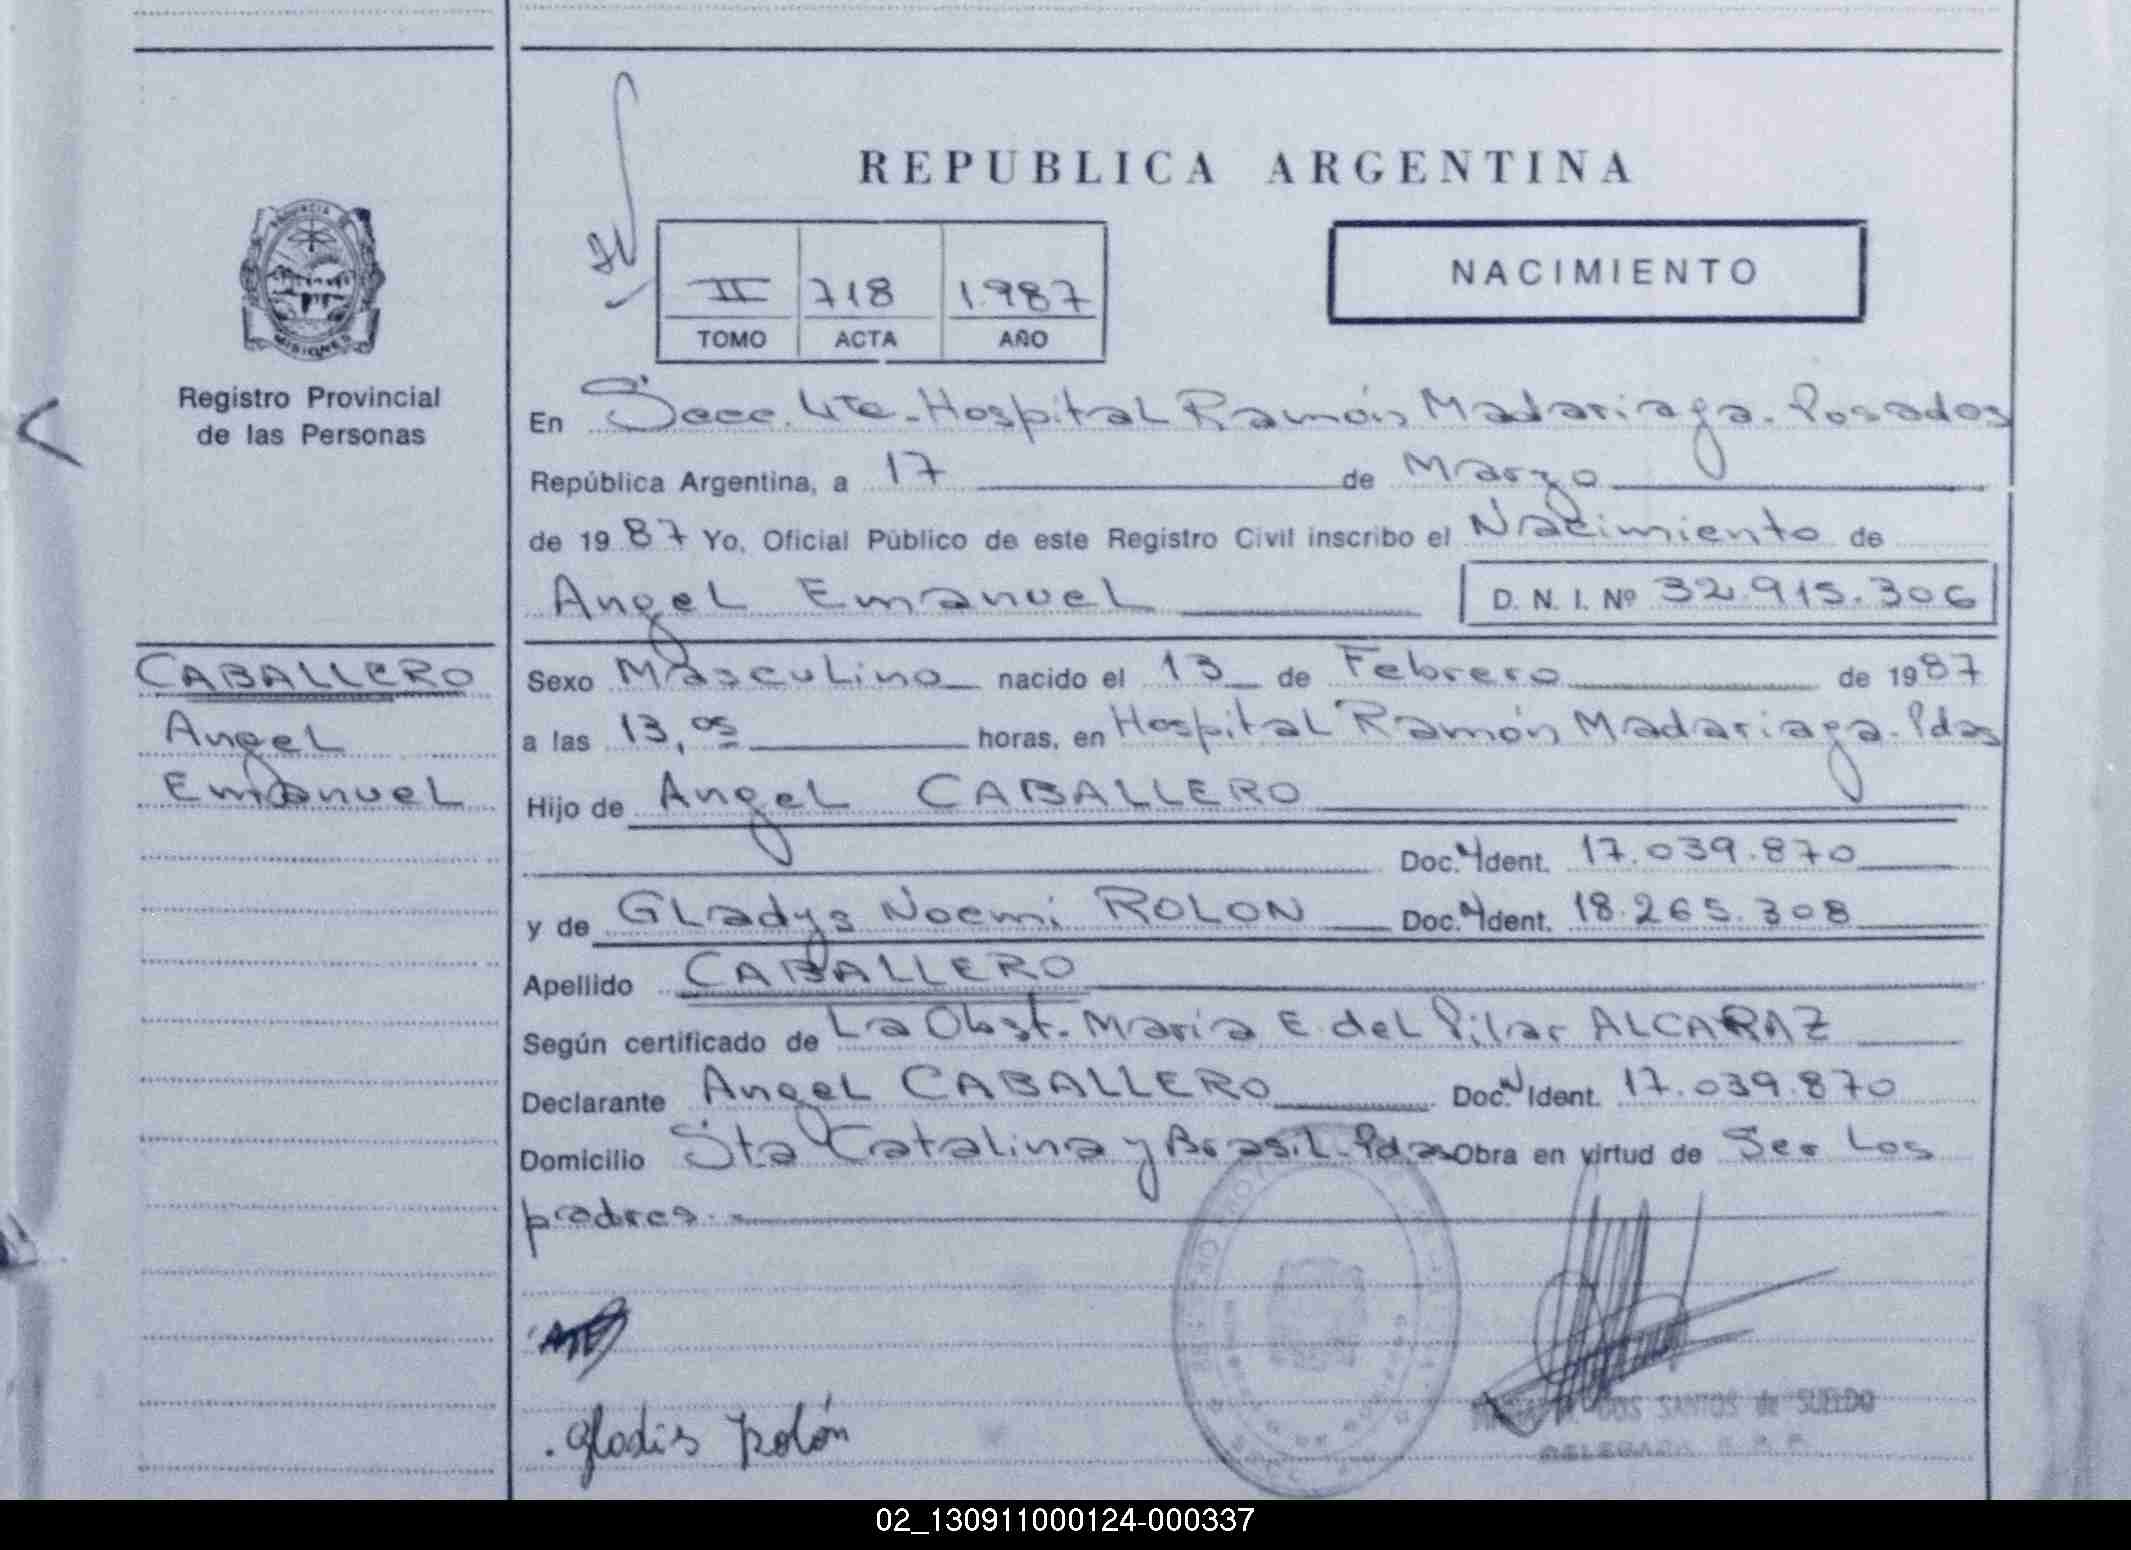 REPUBLICA ARGENTINA
NACIMIENTO
II 718 1987
TOMO ACTA AÑO
PROVINCIA DE
MISIONES
Registro Provincial
de las Personas
En Secc. 4ta - Hospital Ramón Madariaga - Posadas
República Argentina, a 17 de Marzo
de 1987 Yo, Oficial Público de este Registro Civil inscribo el Nacimiento de
Angel Emanuel D. N. I. Nº 32.915.306
CABALLERO
Angel
Emanuel
Sexo Masculino nacido el 13 de Febrero de 1987
a las 13,05 horas, en Hospital Ramón Madariaga - Pdas
Hijo de Angel CABALLERO
Doc. Ident. 17.039.870
y de GLadys Noemi ROLON Doc. Ident. 18.265.308
Apellido CABALLERO
Según certificado de La Obst. Maria E. del Pilar ALCARAZ
Declarante Angel CABALLERO Doc. Ident. 17.039.870
Domicilio Sta Catalina y Brasil - Pdas Obra en virtud de Ser Los
padres.-
Gladis Rolón
DOS SANTOS de SUELDO
DELEGADA R. P. P.
02_130911000124-000337